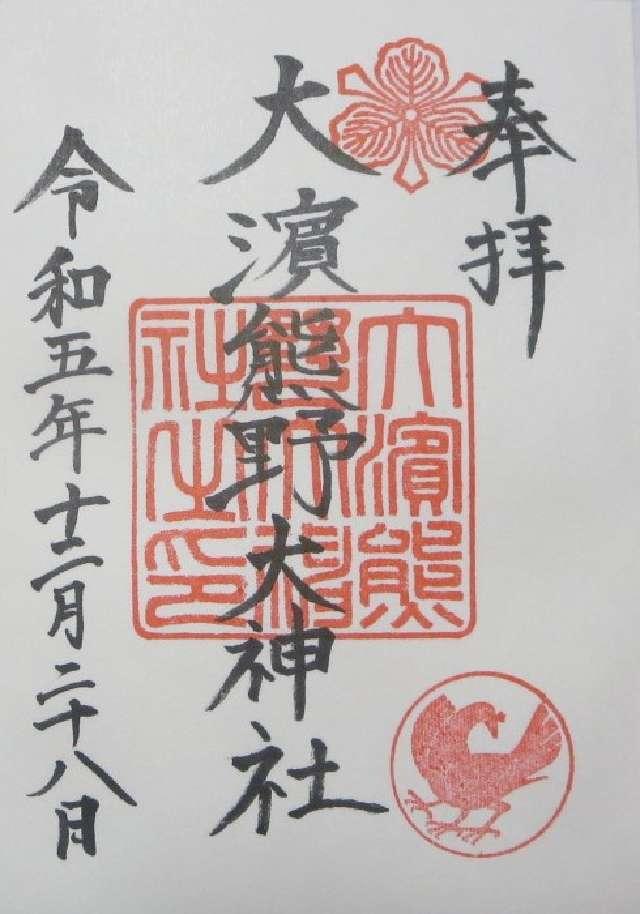 奉拝
大濱熊野大神社
令和五年十二月二十八日
大濱熊
野大神
社之印